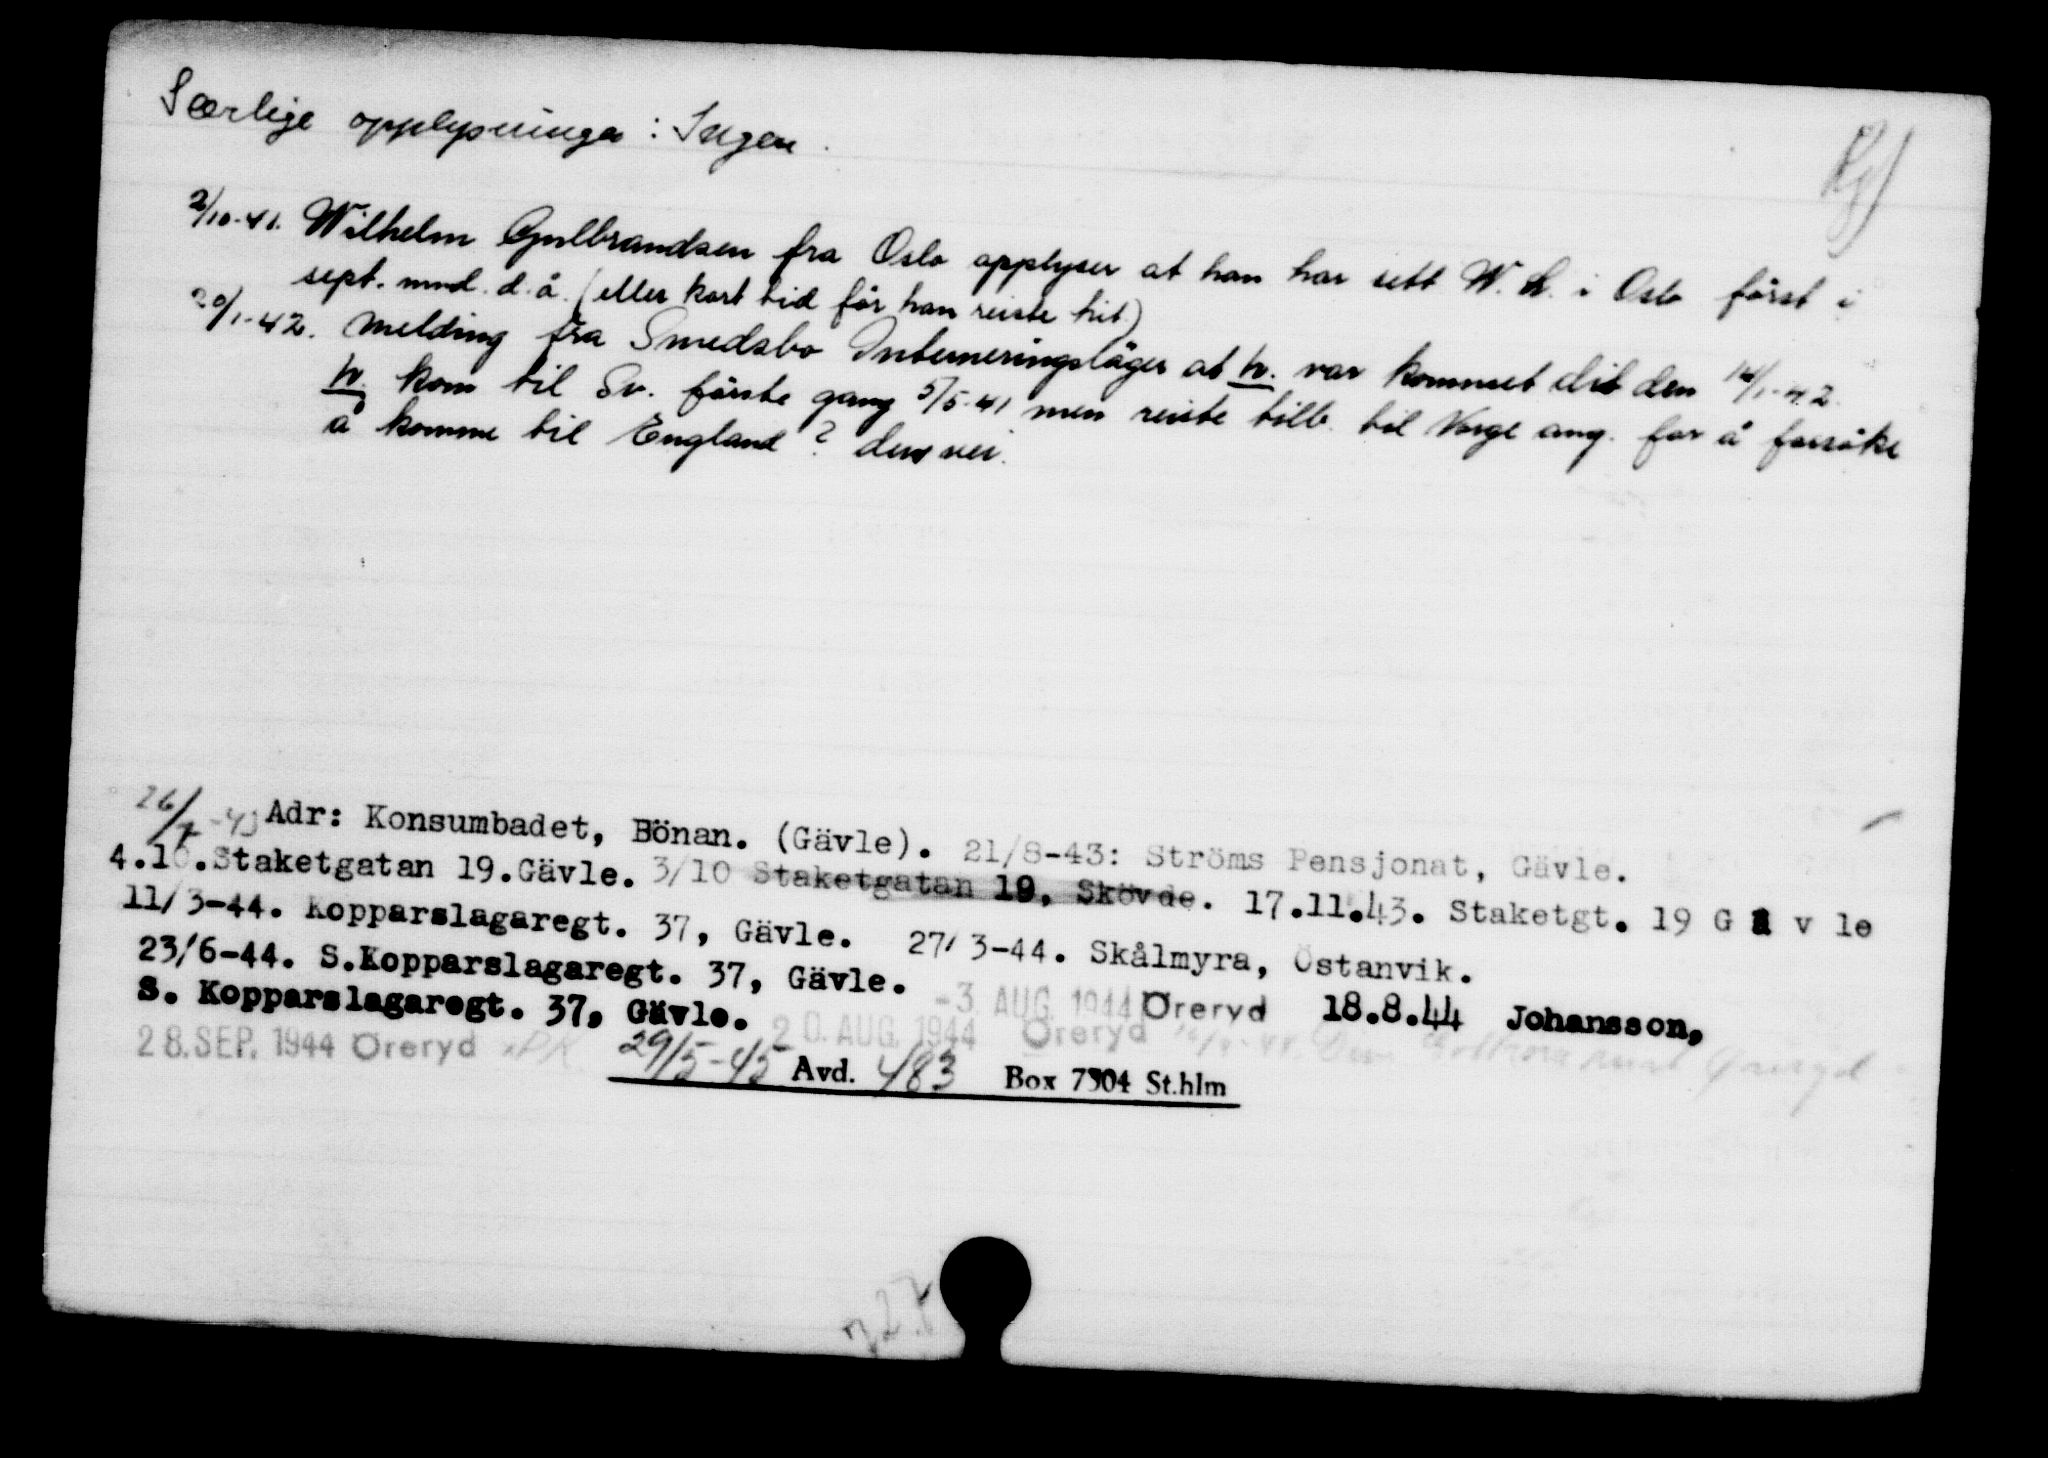 Særlige opplysninger: Ingen.
2/10-41. Wilhelm Gulbrandsen fra Oslo opplyser at han har sett W. H. i Oslo først i
sept. mnd. d.å. (eller kort tid før han reiste hit)
20/1-42. Melding fra Smedsbo Interneringsläger at h. var kommet dit den 14/1-42.
h. kom til Sv. første gang 5/5-41 men reiste tilb. til Norge ang. for å forsøke
å komme til England? den vei.
26/7-43 Adr: Konsumbadet, Bönan. (Gävle). 21/8-43: Ströms Pensjonat, Gävle.
4.10.Staketgatan 19.Gävle. 3/10 Staketgatan 19, Skövde. 17.11.43. Staketgt. 19 G ä v le
11/3-44. Kopparslagaregt. 37, Gävle. 27/3-44. Skålmyra, Östanvik.
23/6-44. S.Kopparslagaregt. 37, Gävle. -3 AUG. 1944 Öreryd 18.8.44 Johansson,
S. Kopparslagaregt. 37, Gävle. 20. AUG. 1944 Öreryd
28. SEP. 1944 Öreryd 29/5-45 Avd. 483 Box 7304 St.hlm
327